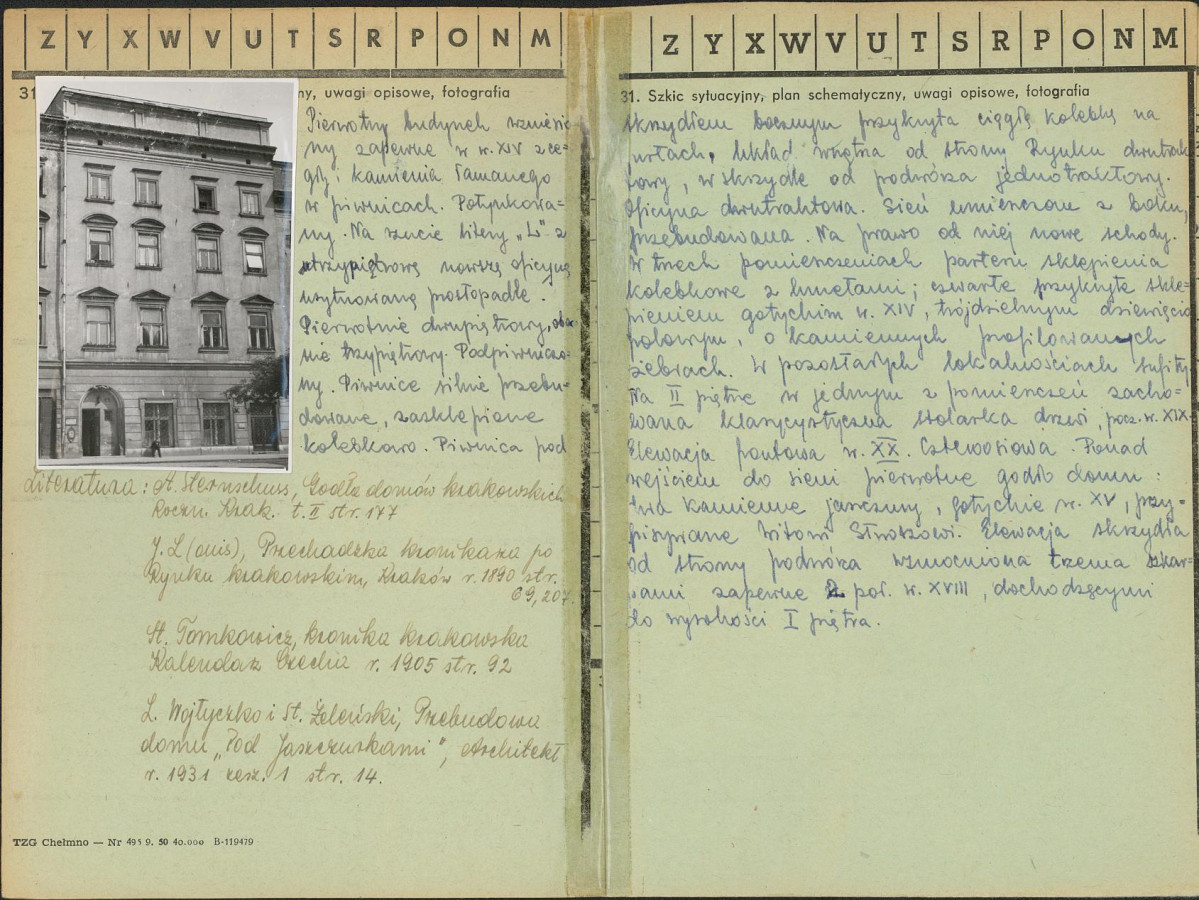 Z Y X W V U T S R P O N M
31 ny, uwagi opisowe, fotografia
Pierwotny budynek wzniesio
ny zapewne w w. XIV z ce=
gły i kamienia łamanego
w piwnicach. Potynkowa=
ny. Na rzucie litery „L" z
trzypiętrową nowszą oficyną
usytuowaną prostopadle.
Pierwotnie dwupiętrowy, obec
nie trzypiętrowy. Podpiwniczo=
ny. Piwnice silnie przebu=
dowane, zasklepione
kolebkowo. Piwnica pod
Literatura: A. Sternschuss, Godła domów krakowskich
Roczn. Krak. t. II str. 177
J. L(ouis), Przechadzka kronikarza po
Rynku krakowskim, Kraków r. 1890 str.
69, 207
St. Tomkowicz, kronika krakowska
Kalendarz Czecha r. 1905 str. 92
L. Wojtyczko i St. Żeleński, Przebudowa
domu „Pod Jaszczurkami", Architekt
r. 1931 zesz. 1 str. 14.
TZG Chełmno — Nr 495 9. 50 40.000 B-119479
Z Y X W V U T S R P O N M
31. Szkic sytuacyjny, plan schematyczny, uwagi opisowe, fotografia
skrzydłem bocznym przykryta ciągłą kolebką na
gurtach. Układ wnętrza od strony Rynku dwutrak
towy, w skrzydle od podwórza jednotraktowy.
Oficyna dwutraktowa. Sień umieszczona z boku,
przebudowana. Na prawo od niej nowe schody.
W trzech pomieszczeniach parteru sklepienia
kolebkowe z lunetami; czwarte przykryte skle=
pieniem gotyckim w. XIV, trójdzielnym dziewięcio
polowym, o kamiennych profilowanych
żebrach. W pozostałych lokalnościach sufity.
Na II piętrze w jednym z pomieszczeń zacho=
wana klasycystyczna stolarka drzwi, pocz. w. XIX.
Elewacja frontowa w. XX. Czteroosiowa. Ponad
wejściem do sieni pierwotne godło domu:
dwa kamienne jaszczury, gotyckie w. XV, przy=
pisywane Witowi Stwoszowi. Elewacja skrzydła
od strony podwórza wzmocniona trzema szkar=
pami zapewne 2 poł. w. XVIII, dochodzącymi
do wysokości I piętra.